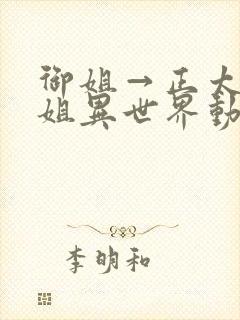 御姐→正太
姐異世界動
李明和